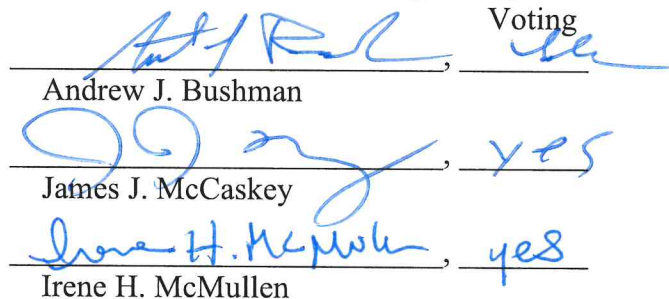 Voting
Andrew J. Bushman
James J. McCaskey
, yes
Irene H. McMullen, yes
Irene H. McMullen